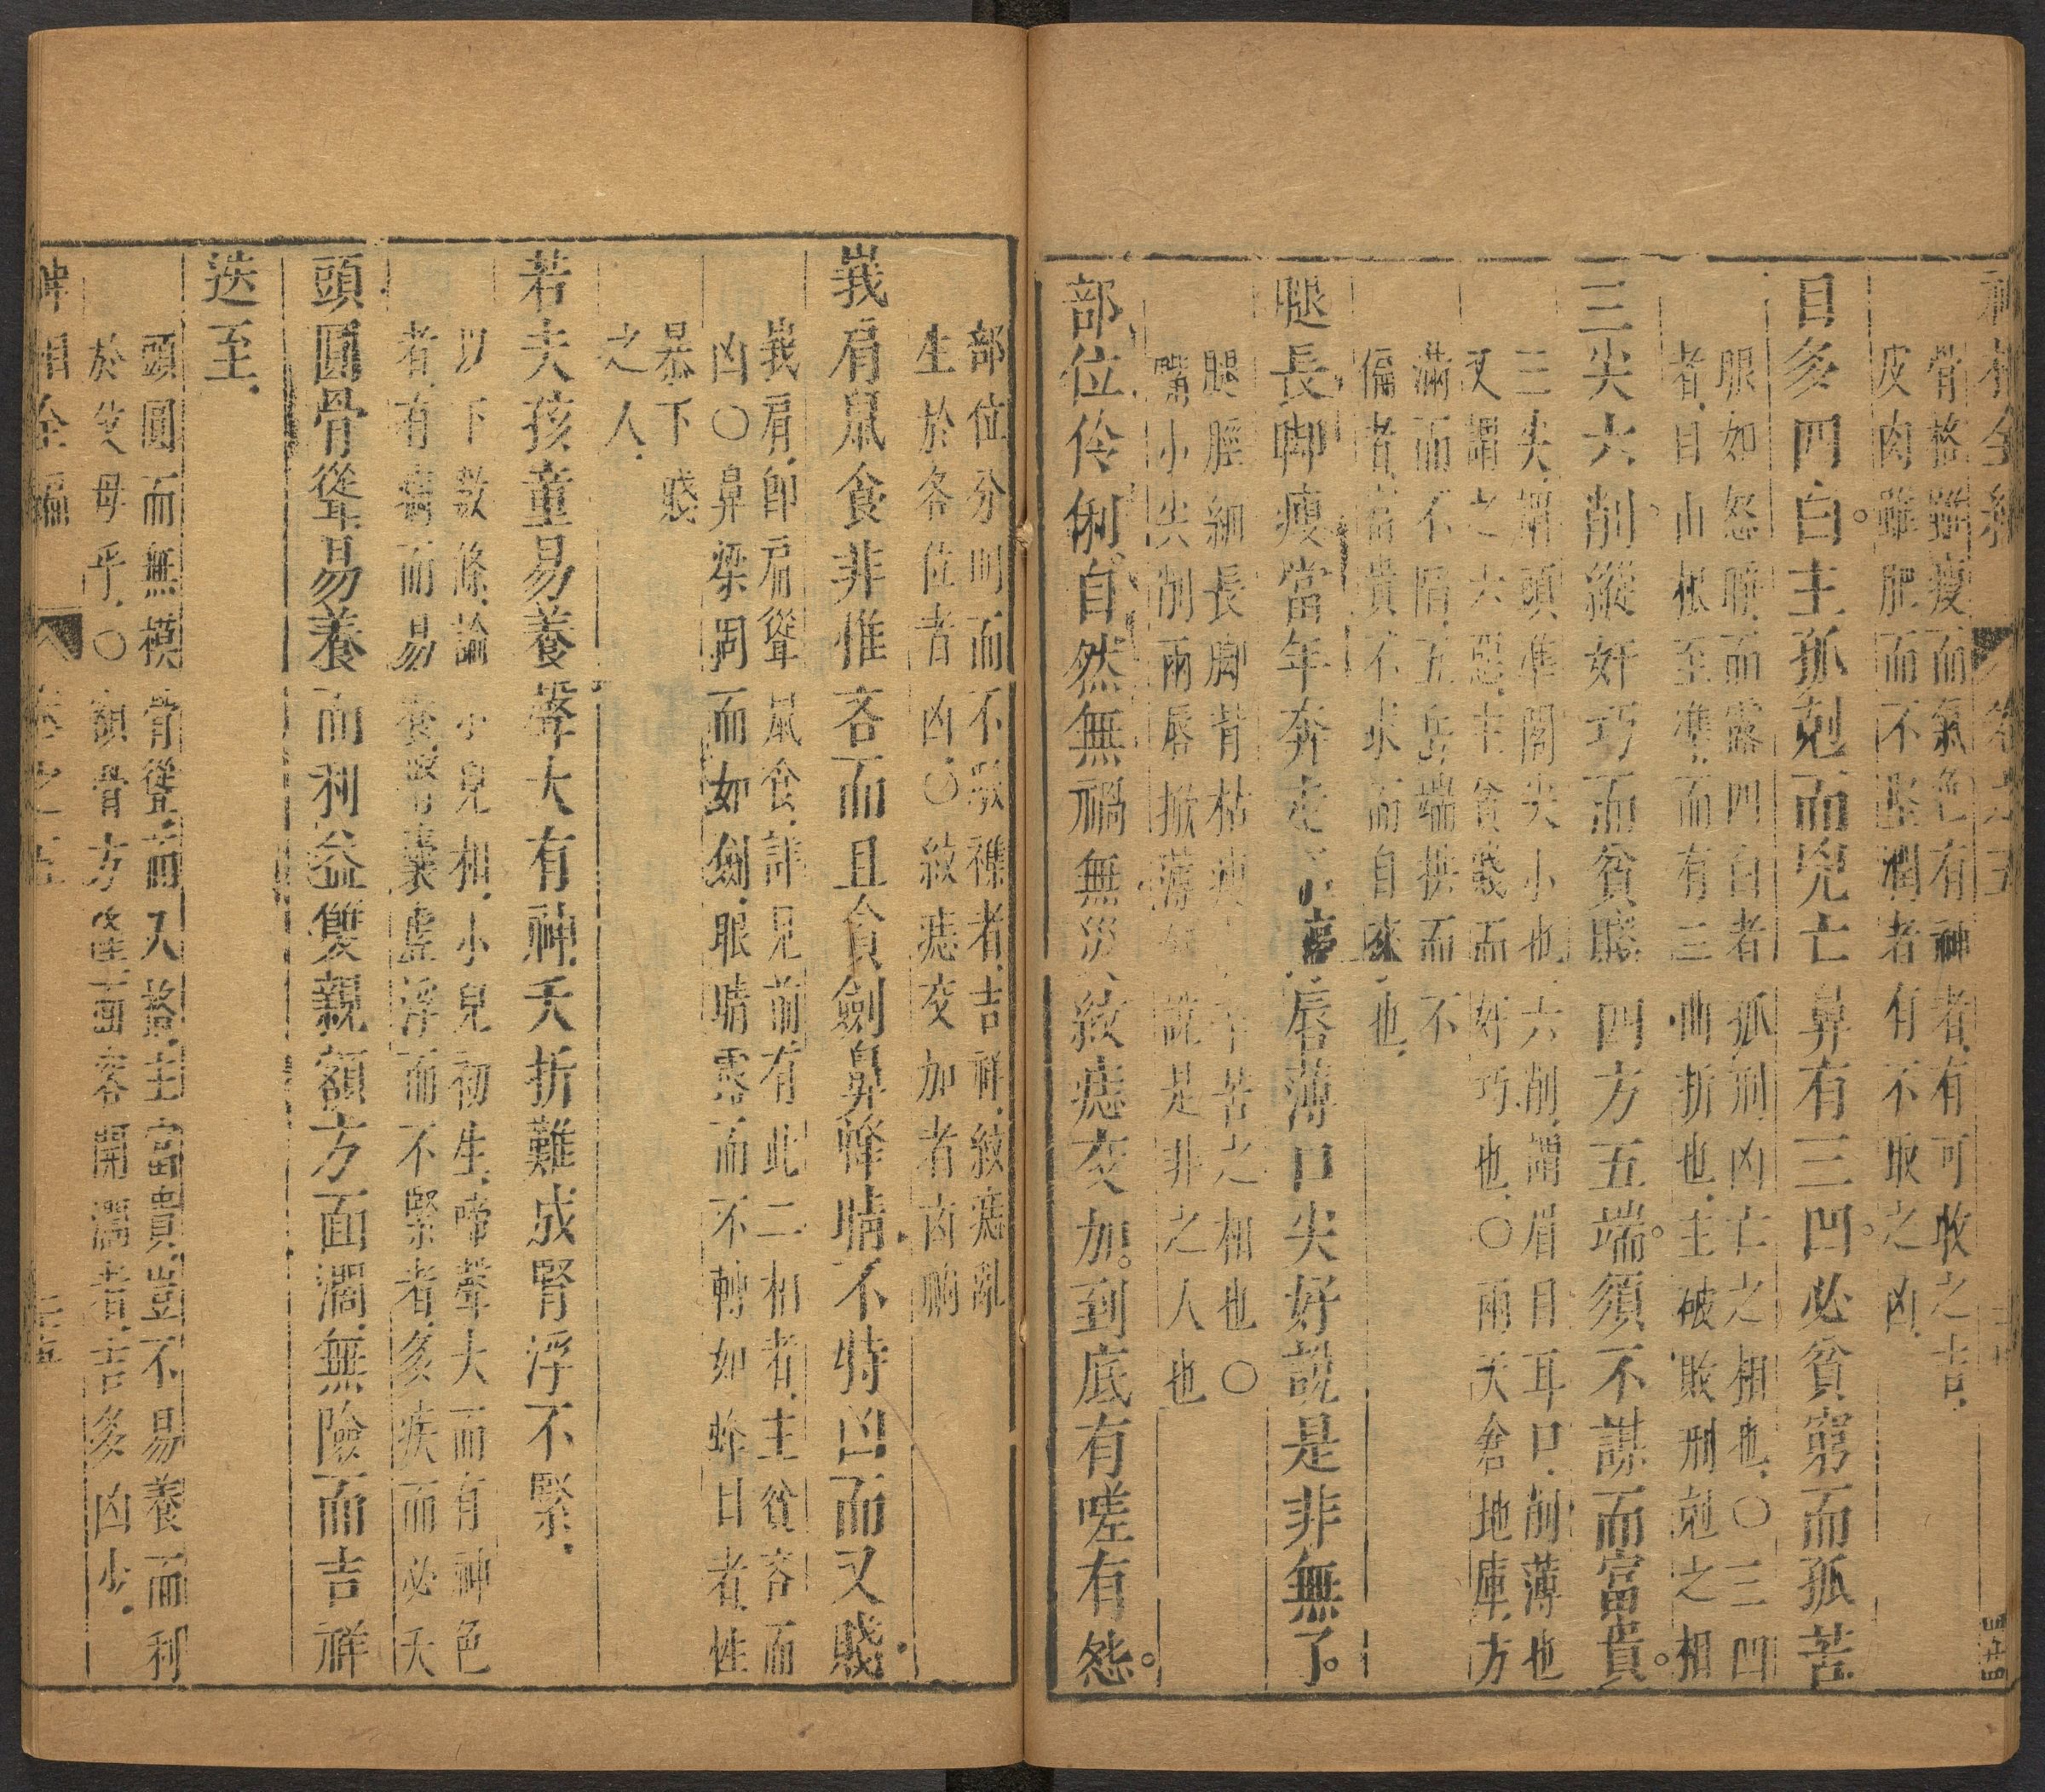 骨格雖瘦而氣色有神者有可收之吉
皮肉雖肥而不堅潤者有不取之凶
目多四白主孤剋而兇亡鼻有三凹必貧窮而孤苦
眼如怒睜而露四白者孤刑凶亡之相也〇三凹
者自山根至準而有三曲折也主破敗刑剋之相
三尖六削縱奸巧而貧賤四方五端須不謀而富貴
三尖謂頭準閣尖小也六削謂眉目耳口削薄也
又謂之六惡主貧賤而奸巧也〇兩天倉地庫方
滿而不陷五岳端拱而不
偏者富貴不求而自來也
腿長脚瘦當年奔走唇薄口尖好說是非無了
腿脛細長脚背枯之相也〇
嘴小尖削兩唇掀薄說是非之人也
部位伶俐自然無禍無災紋痣交加到底有嗟有怨
部位分明而不駁襍者吉祥紋痣亂
生於各位者凶〇紋痣交加者凶
峩肩鼠食非惟吝而且貪劍鼻蜂睛不特凶而又賤
峩肩卽肩聳鼠食詳見前有此二相者主貧吝而
凶〇鼻梁周而如劍眼睛露而不轉如蜂目者性
暴下賤
之人
若夫孩童易養聲大有神夭折難成腎浮不緊
以下數條論小兒相小兒初生啼聲大而有神色
者有竅而易養腎囊虛浮而不緊者多疾而必夭
頭圓骨聳易養而利益雙親額方面濶無險而吉祥
迭至
頭圓而無模骨聳而入格主富貴豈不易養而利
於父母乎〇額骨方隆面容開濶者吉多凶少
神相全編 卷之五 三五